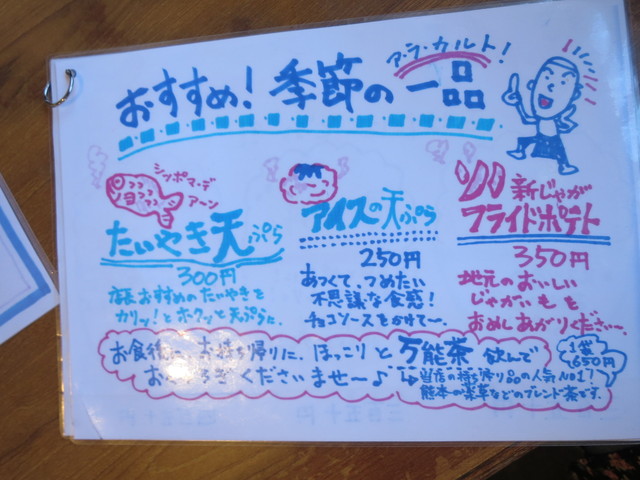 ア・ラ・カルト!
おすすめ!季節の一品
シッポマ・デ
アーン
たいやき天ぷら
300円
店長おすすめのたいやきを
カリッ!とホクッと天ぷらに.
アイスの天ぷら
250円
あつくて、つめたい
不思議な食感!
チョコソースをかけて〜.
新じゃが
フライドポテト
350円
地元のおいしい
じゃがいもを
おめしあがりくださぃ〜.
お食後に、お持ち帰りに、ほっこりと万能茶 飲んで
おくつろぎくださいませ〜♪
1袋
650円
当店の持ち帰り品の人気NO1!
熊本の薬草などのブレンド茶です.